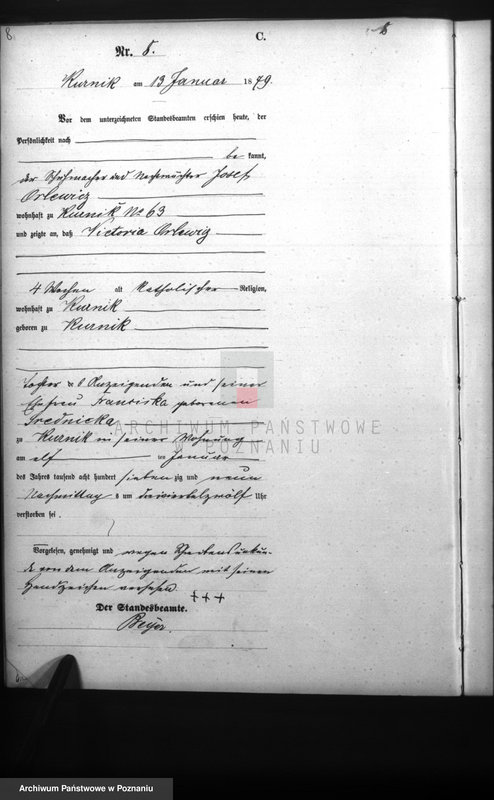 8.
8
C.
Nr. 8.
Kurnik am 13 Januar 1879.
Vor dem unterzeichneten Standesbeamten erschien heute, der
Persönlichkeit nach
be kannt,
der Schuhmacher und Nachtwächter Josef
Orlewicz
wohnhaft zu Kurnik No 63
und zeigte an, daß Victoria Orlewicz
4 Wochen alt katholischer Religion,
wohnhaft zu Kurnik
geboren zu Kurnik
Tochter des Anzeigenden und seiner
Ehefrau Franciska geborenen
Srednicka
zu Kurnik in seiner Wohnung
am elf ten Januar
des Jahres tausend acht hundert sieben zig und neun
Nachmittags um dreiviertelzwölf Uhr
verstorben sei.
Vorgelesen, genehmigt und wegen
von dem Anzeigenden mit seinem
Handzeichen versehen
+++
Der Standesbeamte.
Beyer.
ARCHIWUM PAŃSTWOWE
W POZNANIU
Archiwum Państwowe w Poznaniu